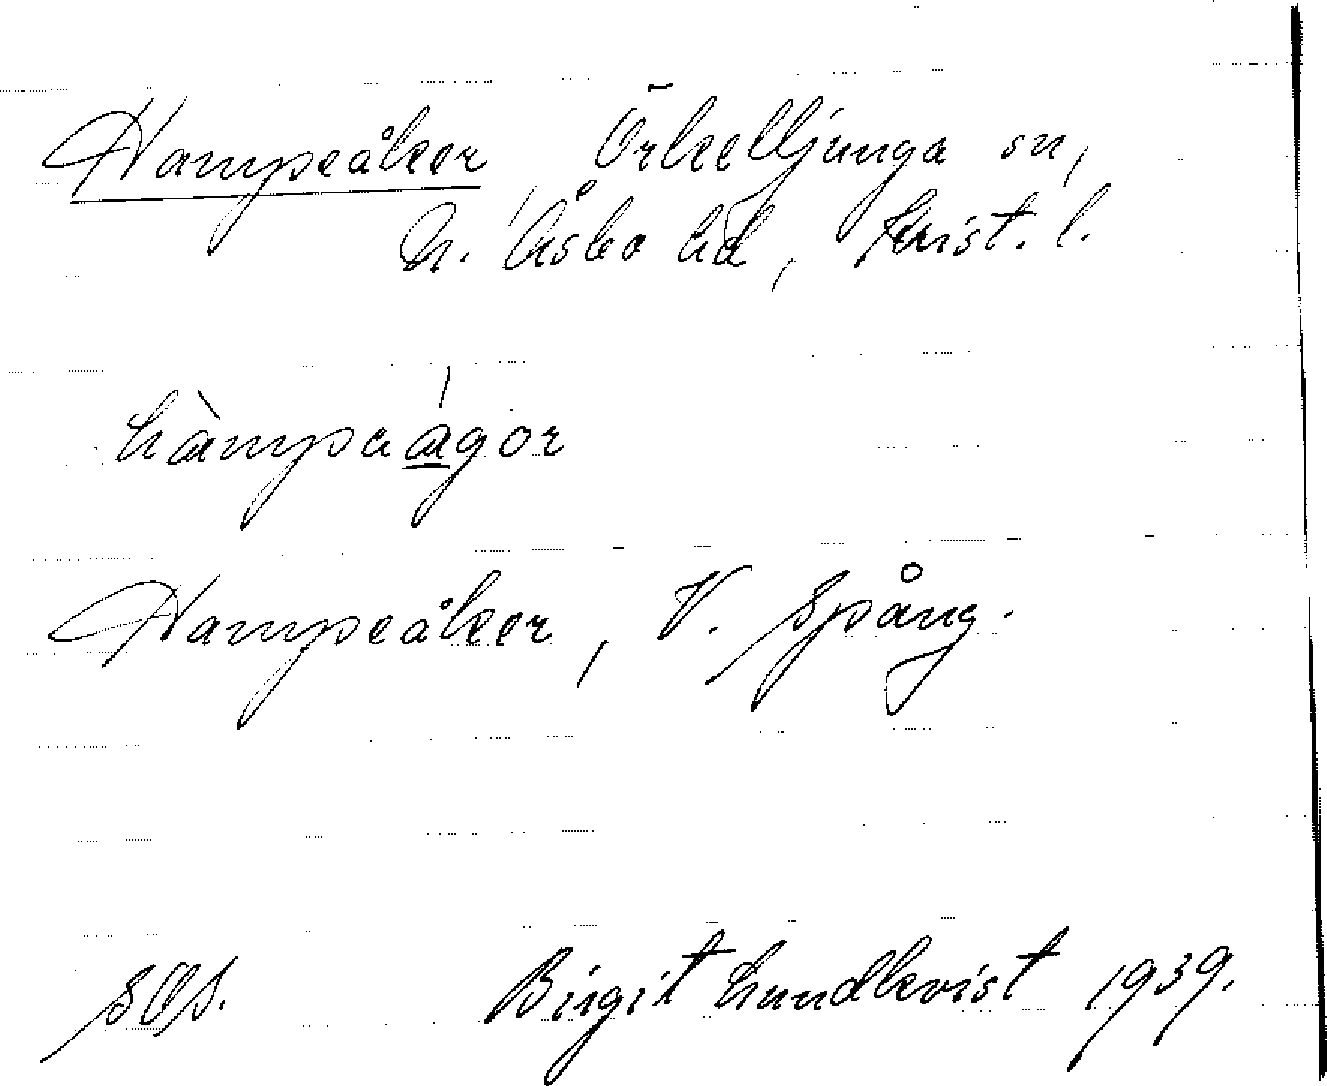 Hampeåker, Örkelljunga sn,
N. Åsbo hd, Krist. l.
hàmpaágor
Hampeåker, V. Spång.
Birgit Lundkvist 1939.